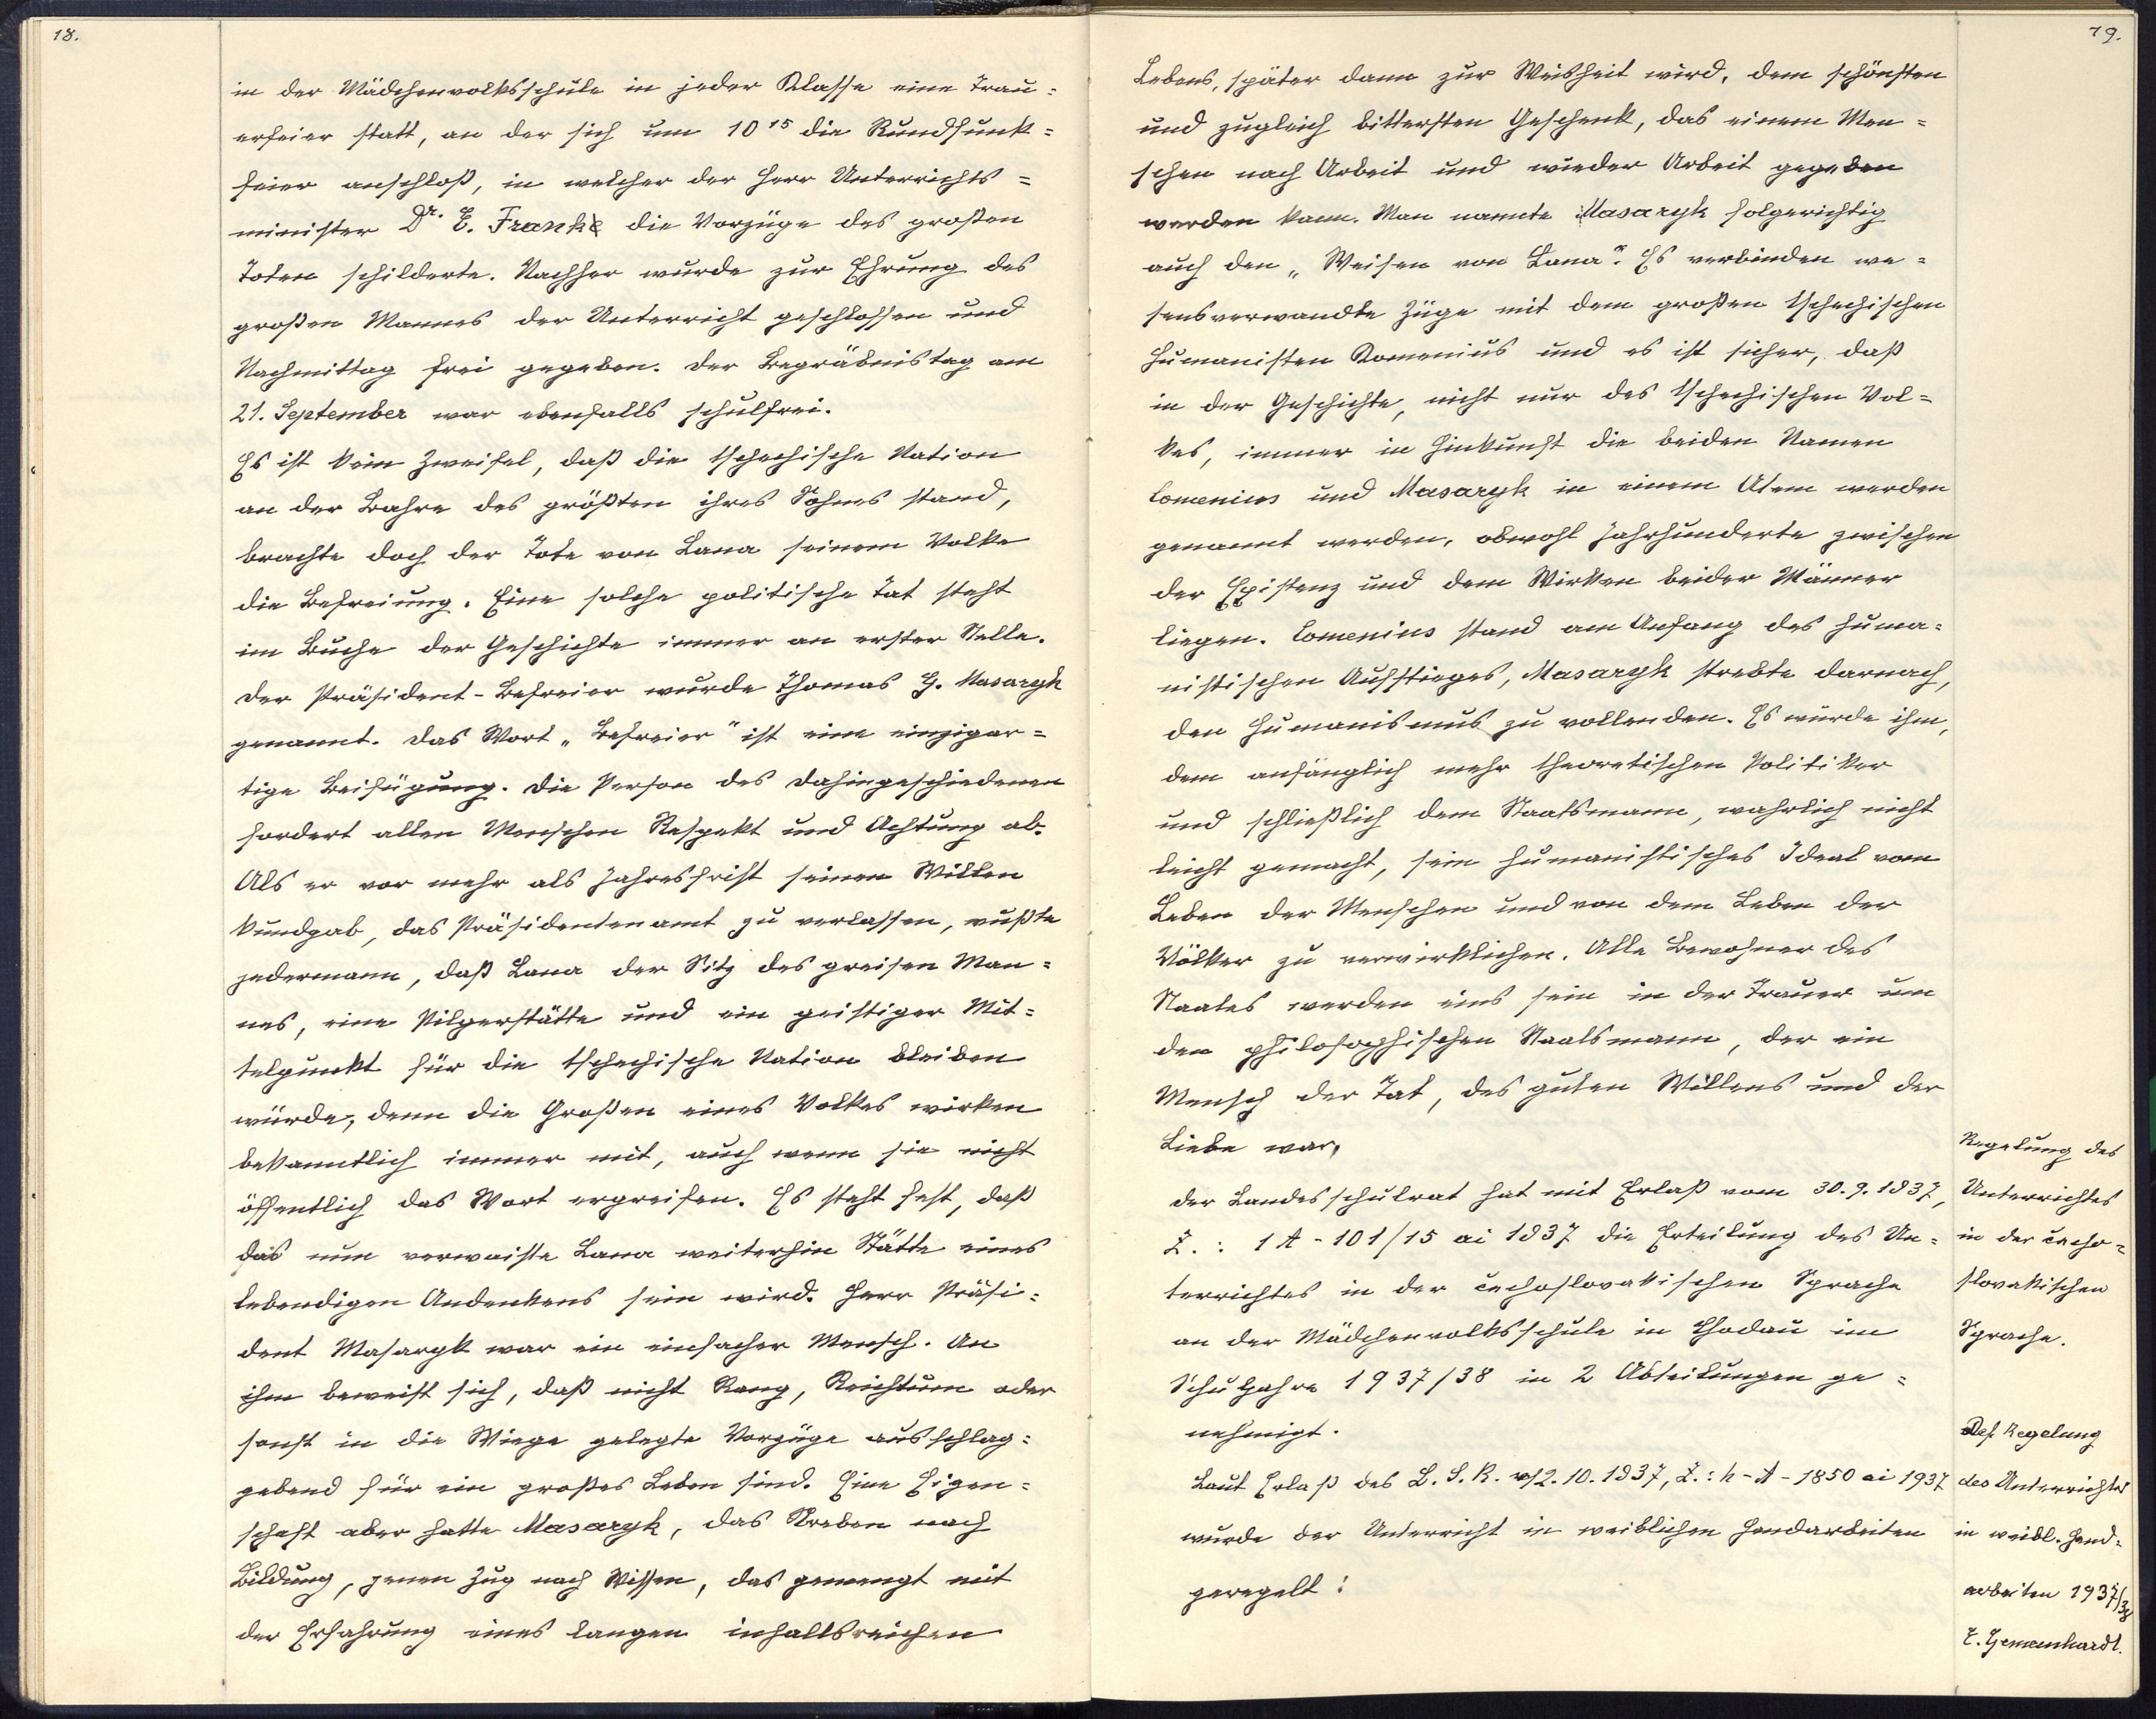 18.
in der Mädchenvolksschule in jeder Klasse eine Trau=
erfeier statt, an der sich um 10 15 die Rundfunk=
feier anschloß, in welcher der Herr Unterrichts=
minister Dr. E. Franke die Vorzüge des großen
Toten schilderte. Nachher wurde zur Ehrung des
großen Mannes der Unterricht geschlossen und
Nachmittag frei gegeben. Der Begräbnistag am
21. September war ebenfalls schulfrei.
Es ist kein Zweifel, daß die tschechische Nation
an der Bahre des größten ihres Sohnes stand,
brachte doch der Tote von Lana seinem Volke
die Befreiung. Eine solche politische Tat steht
im Buche der Geschichte immer an erster Stelle.
Der Präsident-Befreier wurde Thomas G. Masaryk
genannt. Das Wort „Befreier" ist eine einzigar=
tige Beifügung. Die Person des Dahingeschiedenen
fordert allen Menschen Respekt und Achtung ab.
Als er vor mehr als Jahresfrist seinen Willen
kundgab, das Präsidentenamt zu verlassen, wußte
jedermann, daß Lana der Sitz des greisen Man=
nes, eine Pilgerstätte und ein geistiger Mit=
telpunkt für die tschechische Nation bleiben
würde, denn die Großen eines Volkes wirken
bekanntlich immer mit, auch wenn sie nicht
öffentlich das Wort ergreifen. Es steht fest, daß
das nun verwaiste Lana weiterhin Stätte eines
lebendigen Andenkens sein wird. Herr Präsi=
dent Masaryk war ein einfacher Mensch. An
ihm beweist sich, daß nicht Rang, Reichtum oder
sonst in die Wiege gelegte Vorzüge ausschlag=
gebend für ein großes Leben sind. Eine Eigen=
schaft aber hatte Masaryk, das Streben nach
Bildung, jenen Zug nach Wissen, das gemengt mit
der Erfahrung eines langen inhaltsreichen
19.
Lebens, später dann zur Weisheit wird, dem schönsten
und zugleich bittersten Geschenk, das einem Men=
schen nach Arbeit und wieder Arbeit gegeben
werden kann. Man nannte Masaryk folgerichtig
auch den „Weisen von Lana". Es verbinden we=
sensverwandte Züge mit dem großen tschechischen
Humanisten Komenius und es ist sicher, daß
in der Geschichte, nicht nur des tschechischen Vol=
kes, immer in Hinkunft die beiden Namen
Comenius und Masaryk in einem Atem werden
genannt werden, obwohl Jahrhunderte zwischen
der Existenz und dem Wirken beider Männer
liegen. Comenius stand am Anfang des huma=
nistischen Aufstieges, Masaryk strebte darnach,
den Humanismus zu vollenden. Es wurde ihm,
dem anfänglich mehr theoretischen Politiker
und schließlich dem Staatsmann, wahrlich nicht
leicht gemacht, sein humanistisches Ideal vom
Leben der Menschen und von dem Leben der
Völker zu verwirklichen. Alle Bewohner des
Staates werden eins sein in der Trauer um
den philosophischen Staatsmann, der ein
Mensch der Tat, des guten Willens und der
Liebe war.
Der Landesschulrat hat mit Erlaß vom 30.9.1937,
Z.: 1 A - 101/15 ai 1937 die Erteilung des Un=
terrichtes in der čechoslovakischen Sprache
an der Mädchenvolksschule in Chodau im
Schuljahre 1937/38 in 2 Abteilungen ge=
nehmigt.
Laut Erlaß des L.S.R. v. 12.10.1937, Z.: h-A-1850 ai 1937
wurde der Unterricht in weiblichen Handarbeiten
geregelt:
Regelung des
Unterrichtes
in der čecho=
slovakischen
Sprache.
Regelung
des Unterrichtes
in weibl. Hand=
arbeiten 1937/38